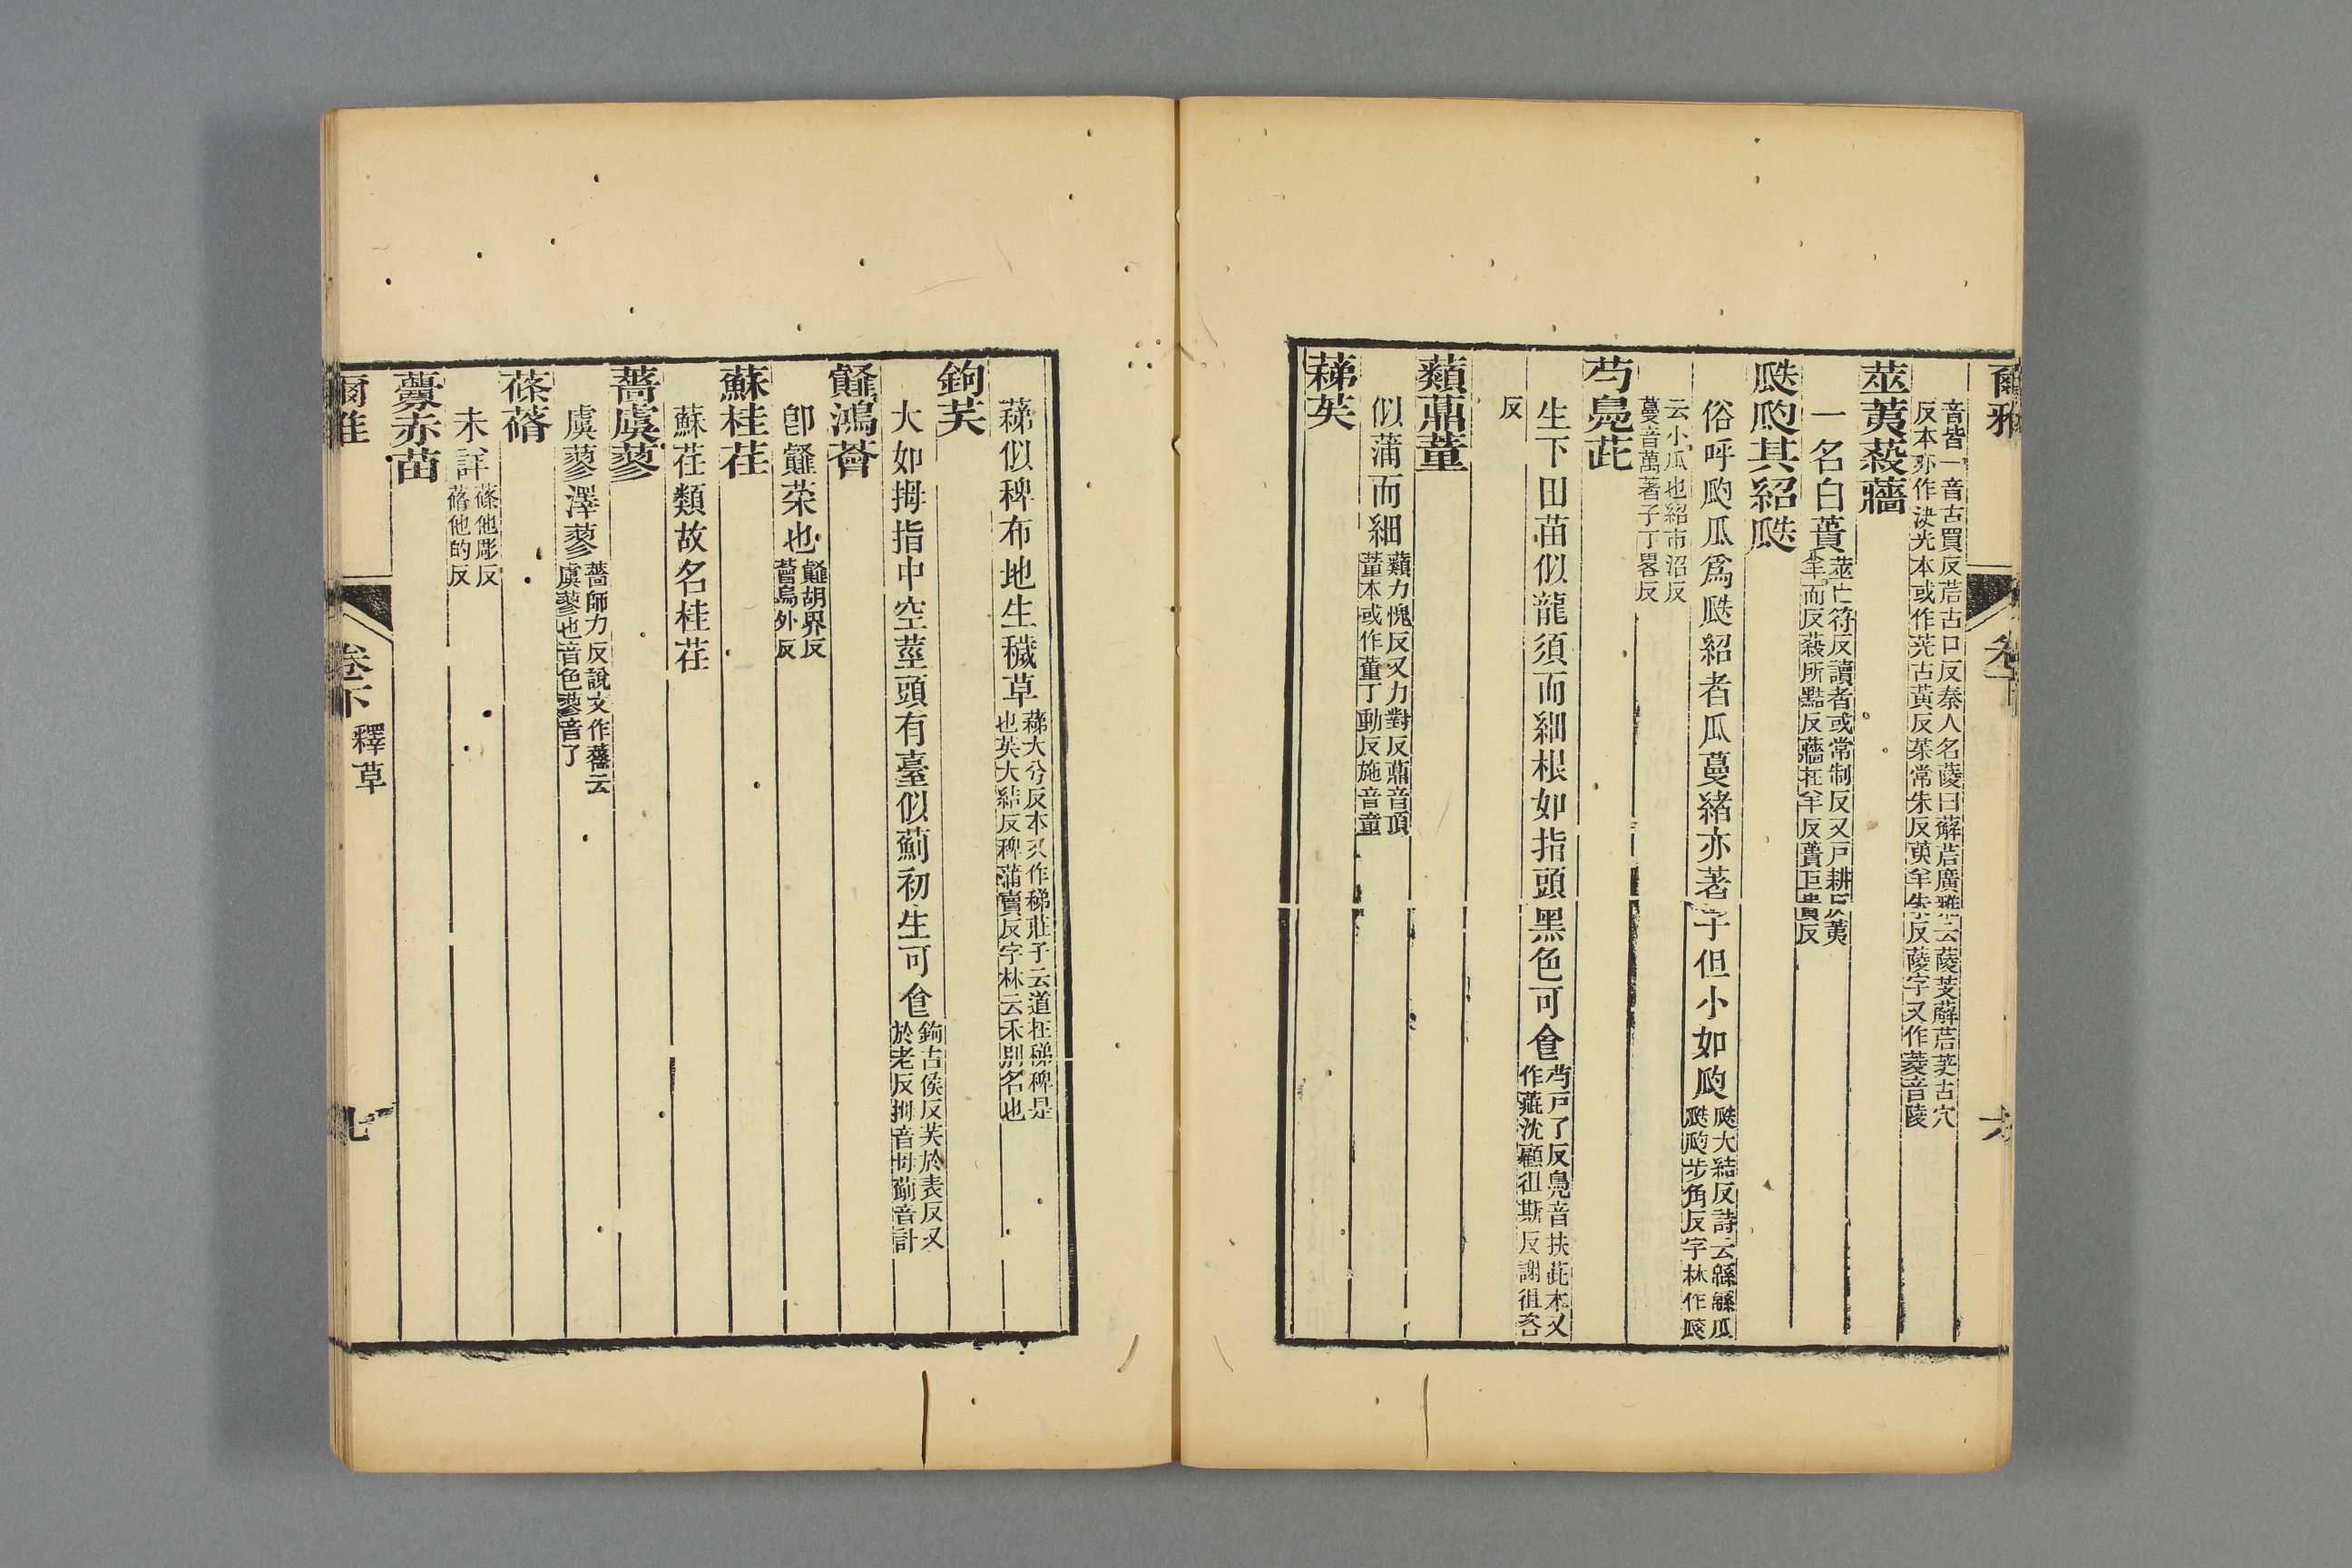 爾雅
卷下
六
音皆一音古買反䓛古口反秦人名薐曰薢䓛廣雅云薐芰薢䓛芵古穴
反本亦作決光本或作茪古黃反茱常朱反萸羊朱反薐字又作菱音陵
莁荑蔱蘠
一名白蕢
莁亡符反讀者或常制反又戸耕反荑
羊而反蔱所黠反蘠在羊反蕢巨貴反
瓞瓝其紹瓞
俗呼瓝瓜爲瓞紹者瓜蔓緒亦著子但小如瓝
瓞大結反詩云緜緜瓜
瓞瓝步角反字林作
云小瓜也紹市沼反
蔓音萬著子丁畧反
芍鳧茈
生下田苗似龍須而細根如指頭黑色可食
芍戸了反鳧音扶茈本又
作䕘沈顧徂斯反謝徂咨
反
蘱薡蕫
似蒲而細
蘱力愧反又力對反薡音頂
蕫本或作董丁動反施音童
蕛苵
蕛似稗布地生穢草
蕛大兮反本又作稊莊子云道在稊稗是
也苵大結反稗蒲賣反字林云禾別名也
鉤芺
大如拇指中空莖頭有臺似薊初生可食
鉤古侯反芺於表反又
於老反拇音母薊音計
䪥鴻薈
卽䪥菜也
䪥胡界反
薈烏外反
蘇桂荏
蘇荏類故名桂荏
薔虞蓼
虞蓼澤蓼
薔師力反說文作薔云
虞蓼也音色蓼音了
蓨蓨
未詳
蓧他彫反
蓨他的反
虋赤苗
爾雅
卷下
釋草
七